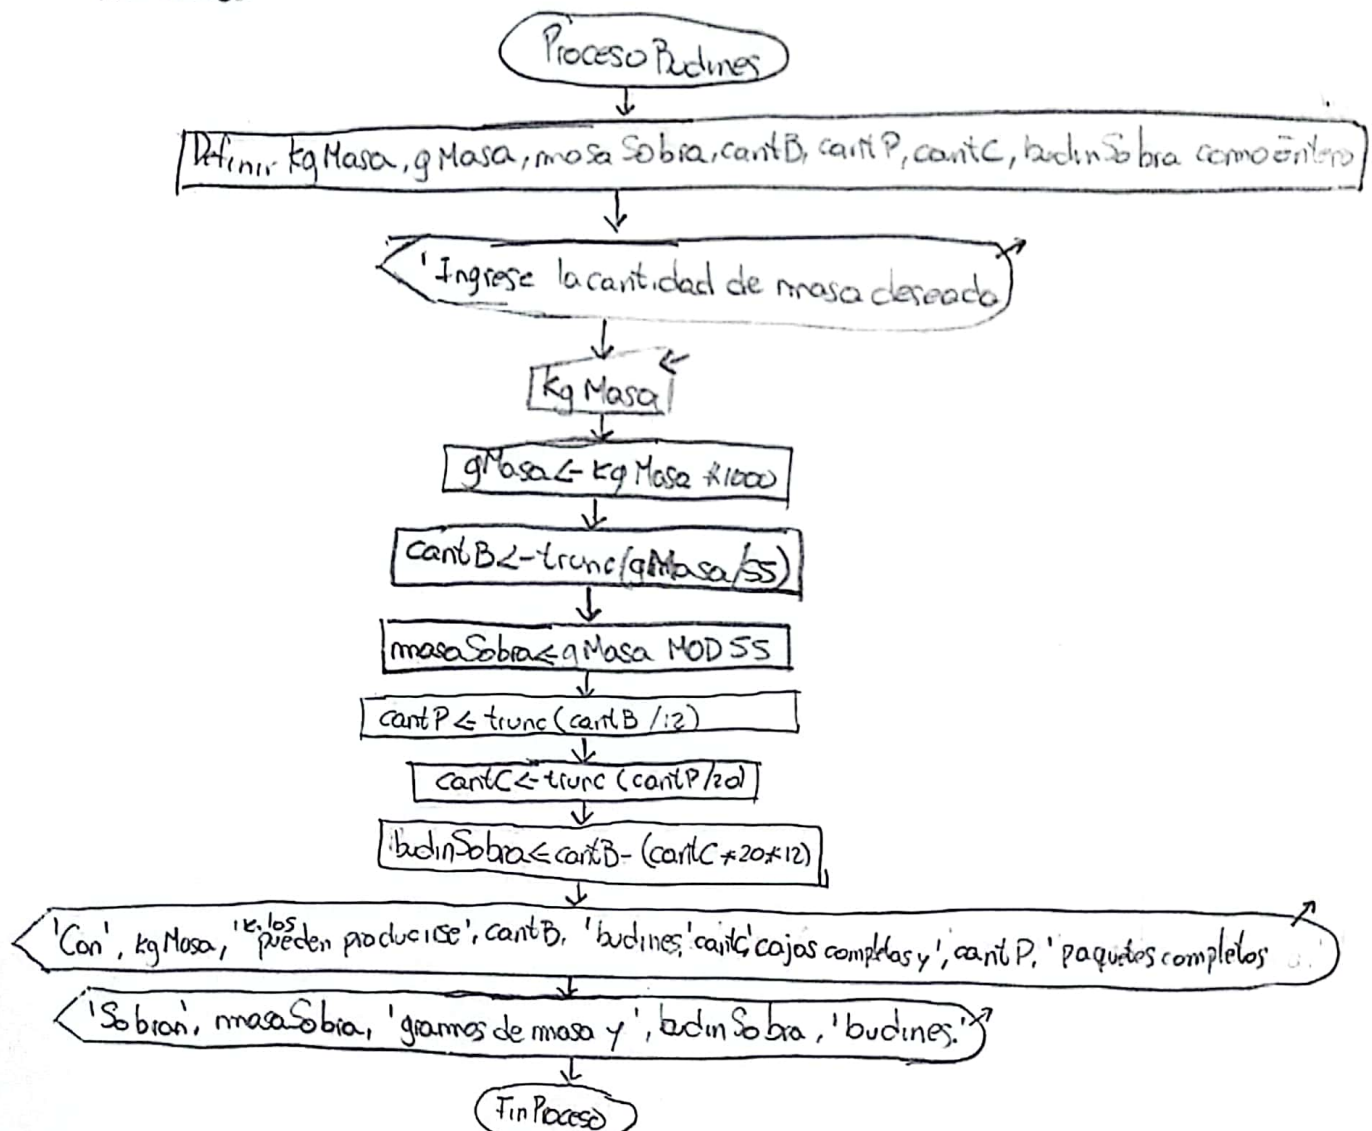 Proceso Budines
Definir kgMasa, gMasa, masaSobra, cantB, cantP, cantC, budinSobra como Entero
'Ingrese la cantidad de masa deseada
kgMasa
gMasa <- kgMasa *1000
cantB <- trunc(gMasa/55)
masaSobra <- gMasa MOD 55
cantP <- trunc(cantB /12)
cantC <- trunc (cantP/20)
budinSobra <- cantB - (cantC *20*12)
'Con', kgMasa, 'kilos pueden producirse', cantB, 'budines,' cantC, 'cajas completas y', cantP, 'paquetes completos
'Sobran', masaSobra, 'gramos de masa y', budinSobra, 'budines.'
FinProceso